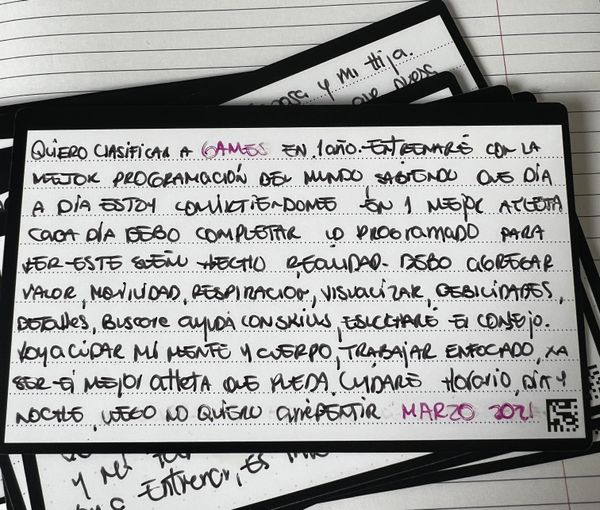 posa y mi Hija.
que puesa
QUIERO CLASIFICAR A GAMES EN 1 AÑO. ENTRENARÉ CON LA
MEJOR PROGRAMACIÓN DEL MUNDO, SABIENDO QUE DÍA
A DÍA ESTOY CONVIRTIENDOME EN 1 MEJOR ATLETA
CADA DÍA DEBO COMPLETAR LO PROGRAMADO PARA
VER ESTE SUEÑO HECHO REALIDAD. DEBO AGREGAR
VALOR, MOVILIDAD, RESPIRACION, VISUALIZAR, DEBILIDADES,
DETALLES, BUSCARE AYUDA CON SKILLS, ESCUCHARÉ EL CONSEJO.
VOY A CUIDAR MI MENTE Y CUERPO, TRABAJAR ENFOCADO, XA
SER EL MEJOR ATLETA QUE PUEDA. CUIDARÉ HORARIO, DÍA Y
NOCHE, LUEGO NO QUIERO ARREPENTIR MARZO 2021
Y MI
Entrenar, ES